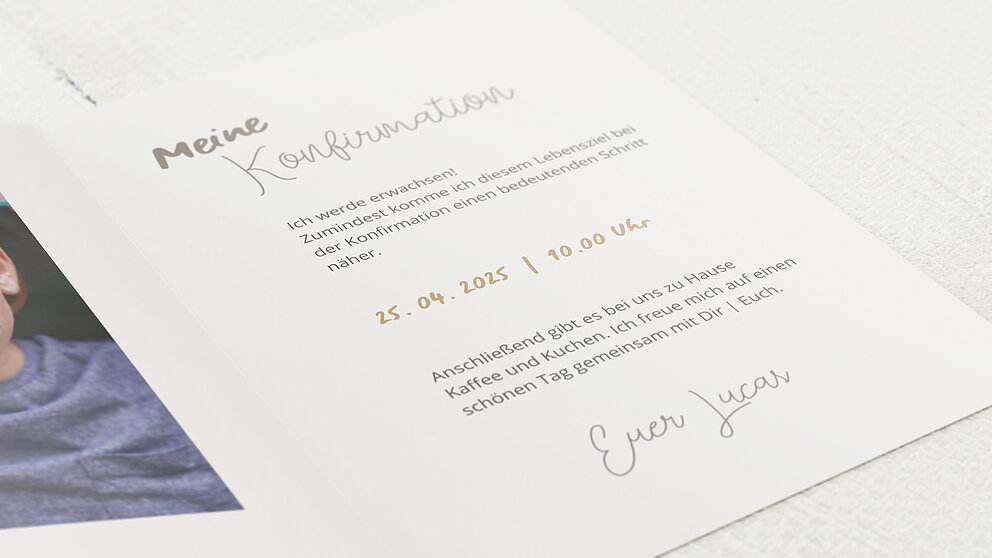 Meine
Konfirmation
Ich werde erwachsen!
Zumindest komme ich diesem Lebensziel bei
der Konfirmation einen bedeutenden Schritt
näher.
25. 04. 2025 | 10.00 Uhr
Anschließend gibt es bei uns zu Hause
Kaffee und Kuchen. Ich freue mich auf einen
schönen Tag gemeinsam mit Dir | Euch.
Euer Lucas